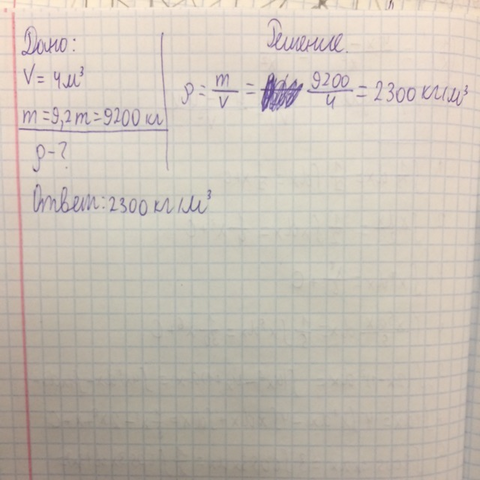 Дано:
V = 4м³
m = 9,2т = 9200 кг
ρ - ?
Решение.
ρ = m/V = 9200/4 = 2300 кг/м³
Ответ: 2300 кг/м³